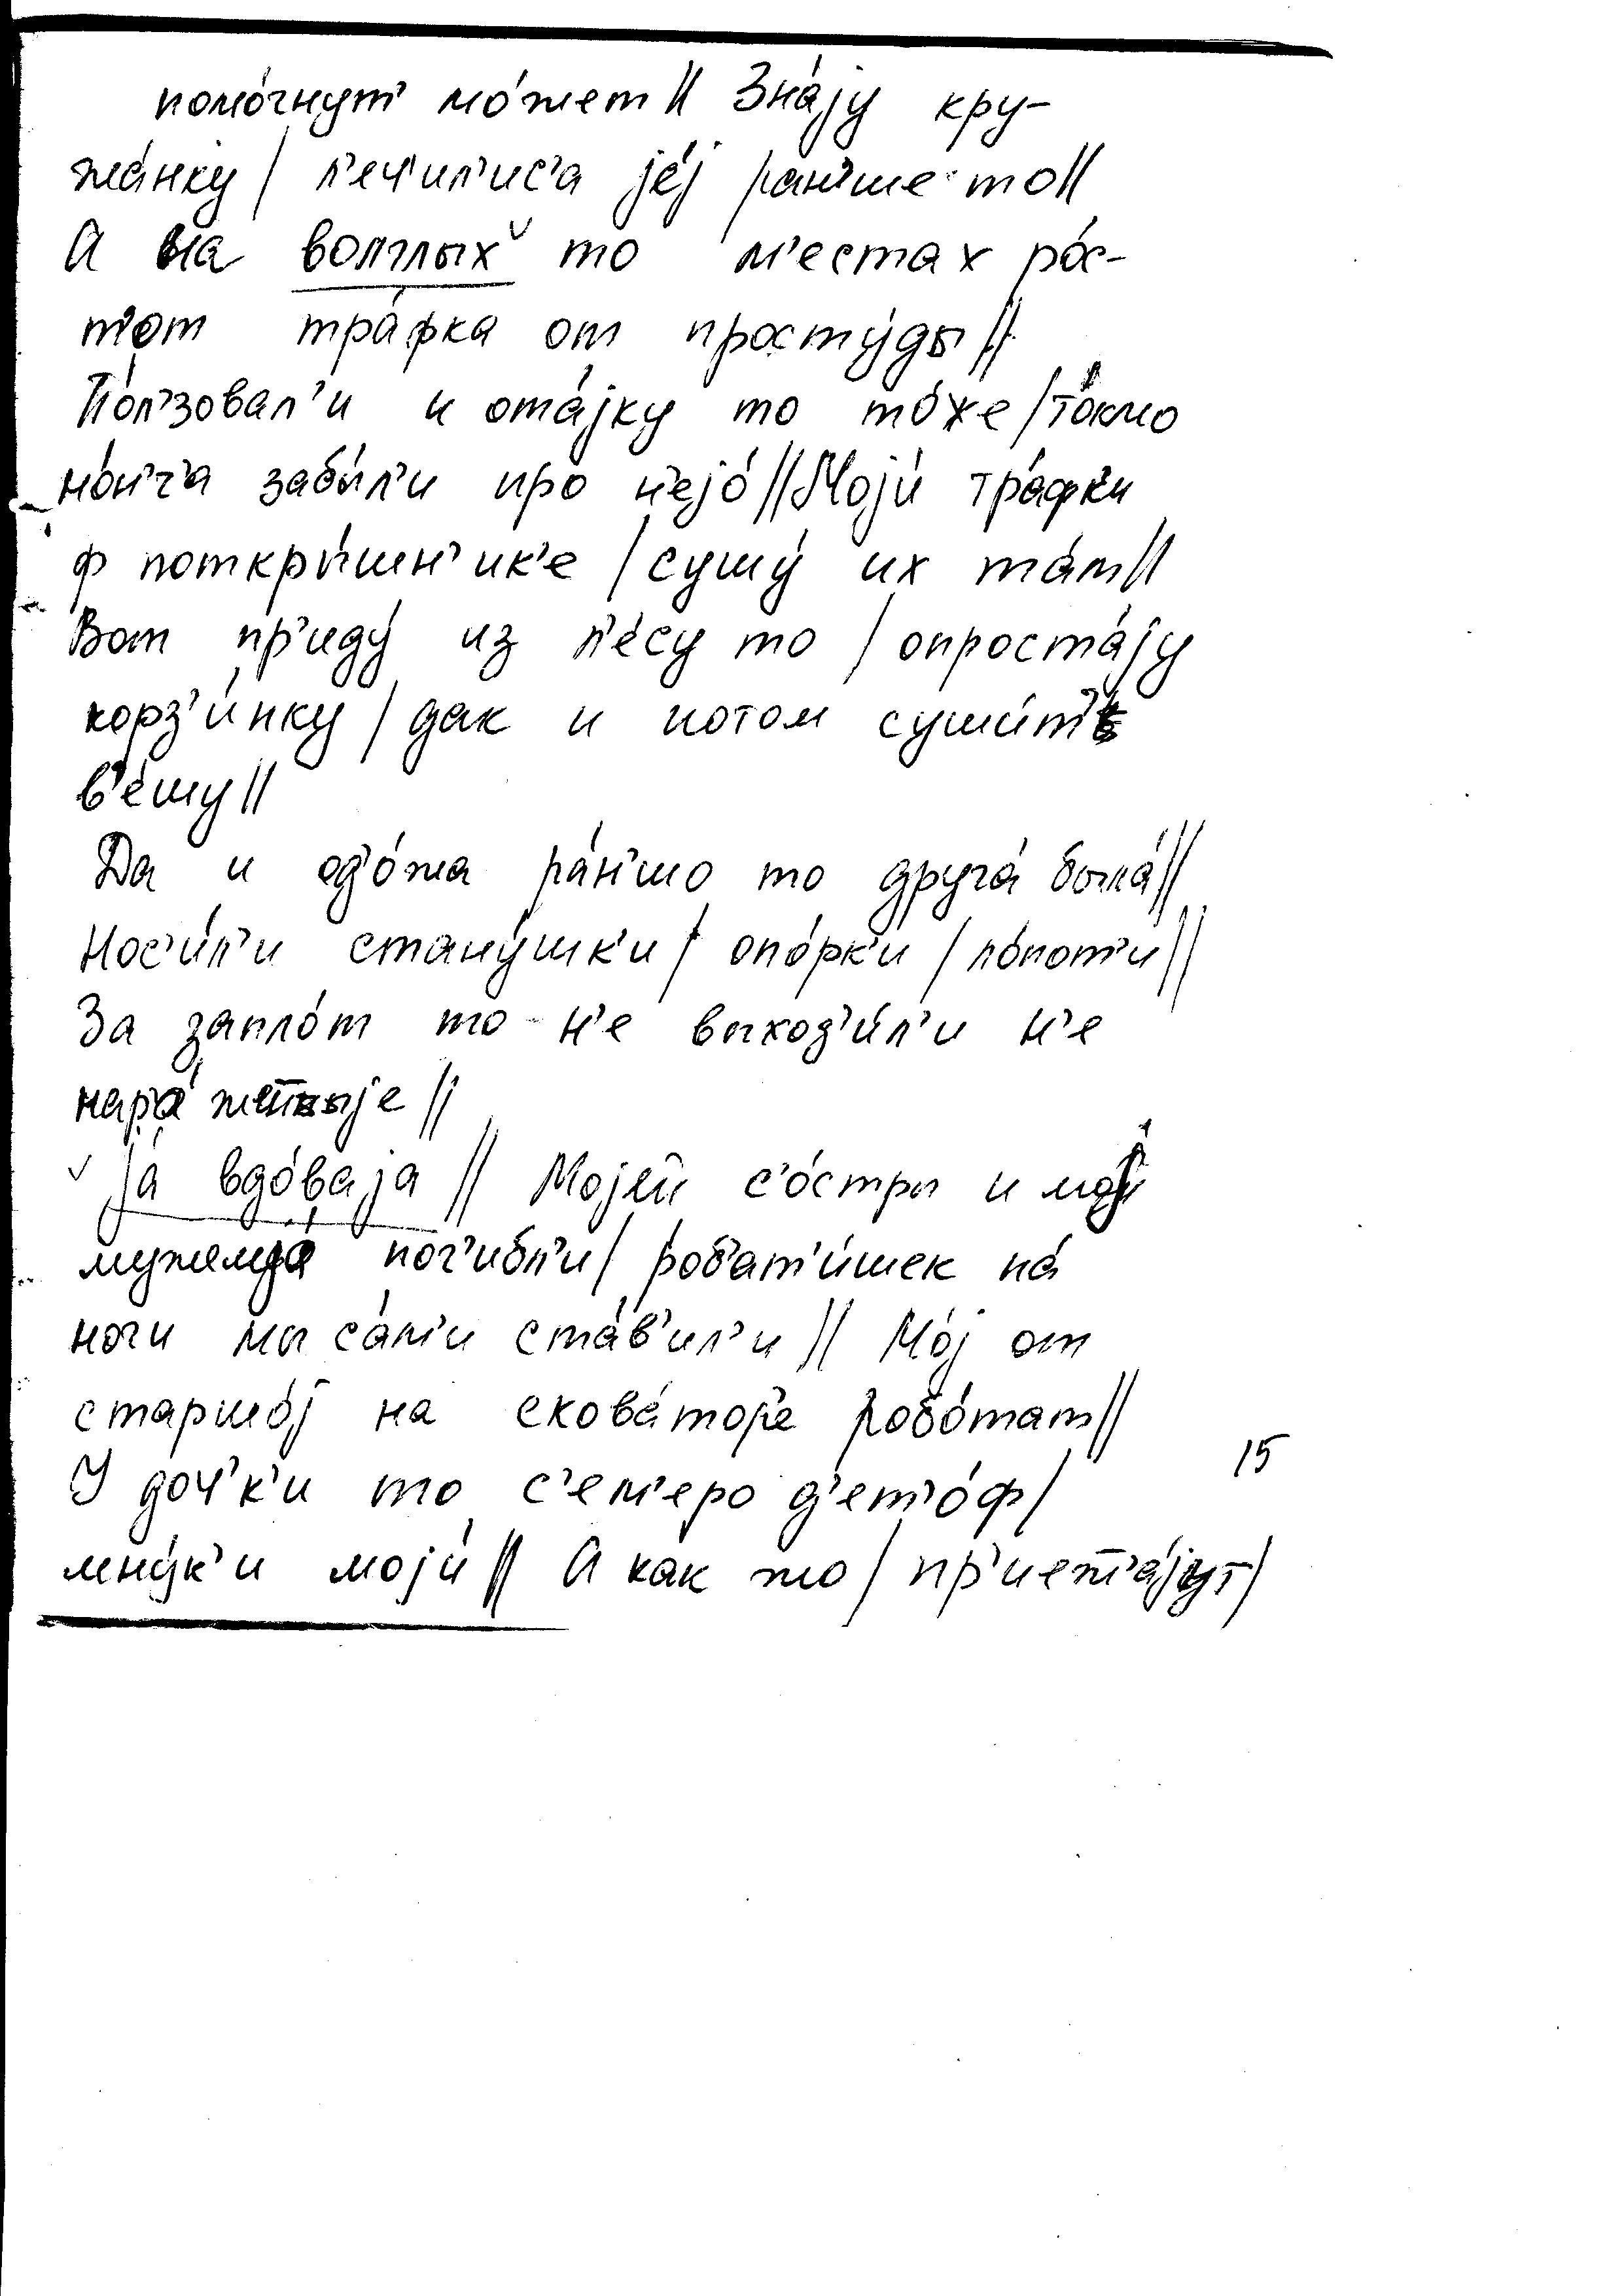 помо́гнут' мо́жет // Зна́jу кру-
жа́нку / л'еч'ил'ис'а jе́j ра́н'ше то //
А на волглых то м'естах ро́с-
т'от тра́фка от просту́ды //
По́л'зовал'и и ота́jку то то́же / то́кмо
но́н'ч'а забы́л'и про н'еjо́ // Моjи́ тра́фк'и
ф поткры́шн'ик'е / сушу́ их та́м //
Вот пр'иду́ из л'е́су то / опроста́jу
корз'и́нку / дак и потом суши́т'
в'е́шу //
Да и од'о́жа ра́н'шо то друга́ была́ //
Нос'и́л'и стану́шк'и / опо́рк'и / ло́пот'и //
За запло́т то н'е выход'и́л'и н'е
jа́ вдо́ваjа // Моjей с'о́стры и моj
пог'ибл'и / роб'ат'и́шек на́
ноги мы са́м'и ста́в'ил'и // Мо́j от
старшо́j на скова́тор'е робо́тат //
У доч'к'и то с'ем'еро д'ет'о́ф /
мну́к'и моjи́ // А как то / пр'иета́jут /
15